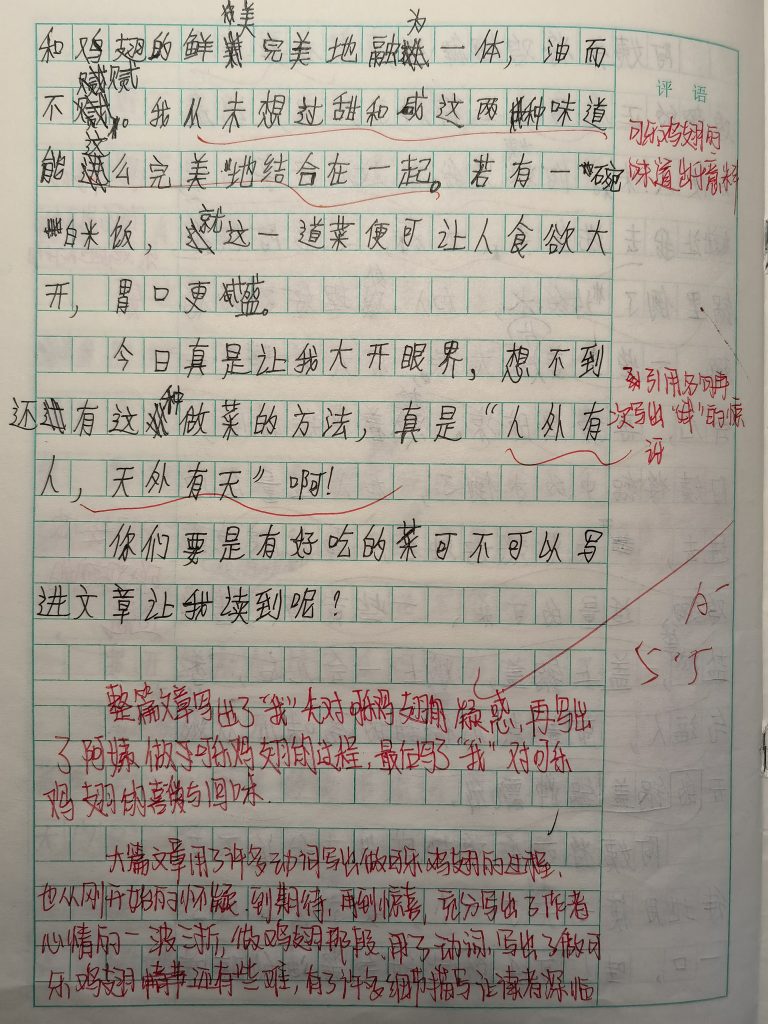 和鸡翅的鲜美完美地融为一体，油而
不腻腻。我从未想过甜和咸这两种味道
能这么完美地结合在一起。若有一碗
白米饭，就这一道菜便可让人食欲大
开，胃口更盛。
今日真是让我大开眼界，想不到
还有这种做菜的方法，真是“人外有
人，天外有天”啊！
你们要是有好吃的菜可不可以写
进文章让我读到呢？
评语
可乐鸡翅的
味道出乎意料
引用名句再
次写出“我”的惊
讶
5.5
整篇文章写出了“我”先对可乐鸡翅的疑惑，再写出
了阿姨做可乐鸡翅的过程，最后写了“我”对可乐
鸡翅的喜爱与回味.
大篇文章用了许多动词写出做可乐鸡翅的过程，
也从刚开始的怀疑，到期待，再到惊喜，充分写出了作者
心情的一波三折，做鸡翅那段，用了动词，写出了做可
乐鸡翅还有些难，有了许多细节描写让读者深临